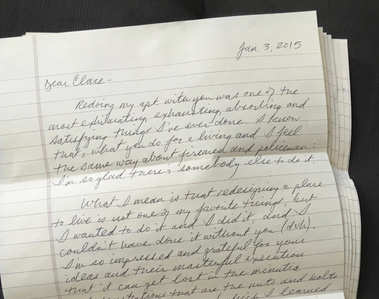 Jan. 3, 2015
Dear Clare -
Redoing my apt. with you was one of the
most exhilarating, exhausting, absorbing and
satisfying things I've ever done. I know
that's what you do for a living and I feel
the same way about firemen and policemen:
I'm so glad there's somebody else to do it.
What I mean is that redesigning a place
to live is not one of my favorite things, but
I wanted to do it and I did it, and I
couldn't have done it without you (duh).
I'm so impressed and grateful for your
ideas and their masterful execution
that it can get lost in the minutia
that are the nuts and bolts
I learned